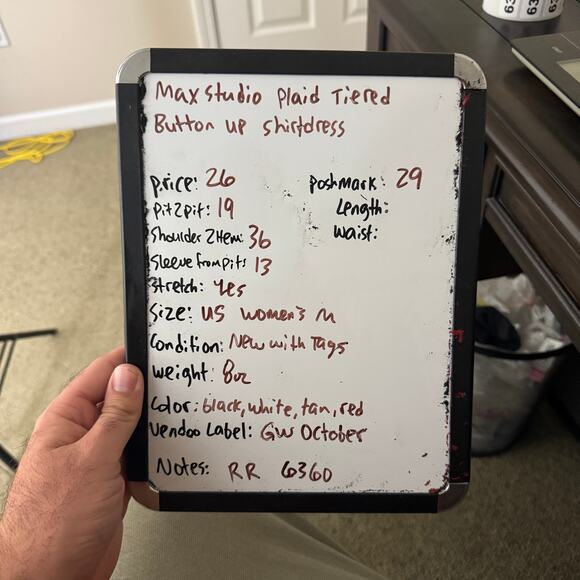 Max Studio Plaid Tiered
Button up shirtdress
price: 26
Poshmark: 29
Pit2pit: 19
Length:
Shoulder 2 Hem: 36
Waist:
Sleeve from pit: 13
Stretch: Yes
Size: US Women's M
Condition: New with Tags
Weight: 8oz
Color: black, white, tan, red
Vendoo Label: GW October
Notes: RR 6360